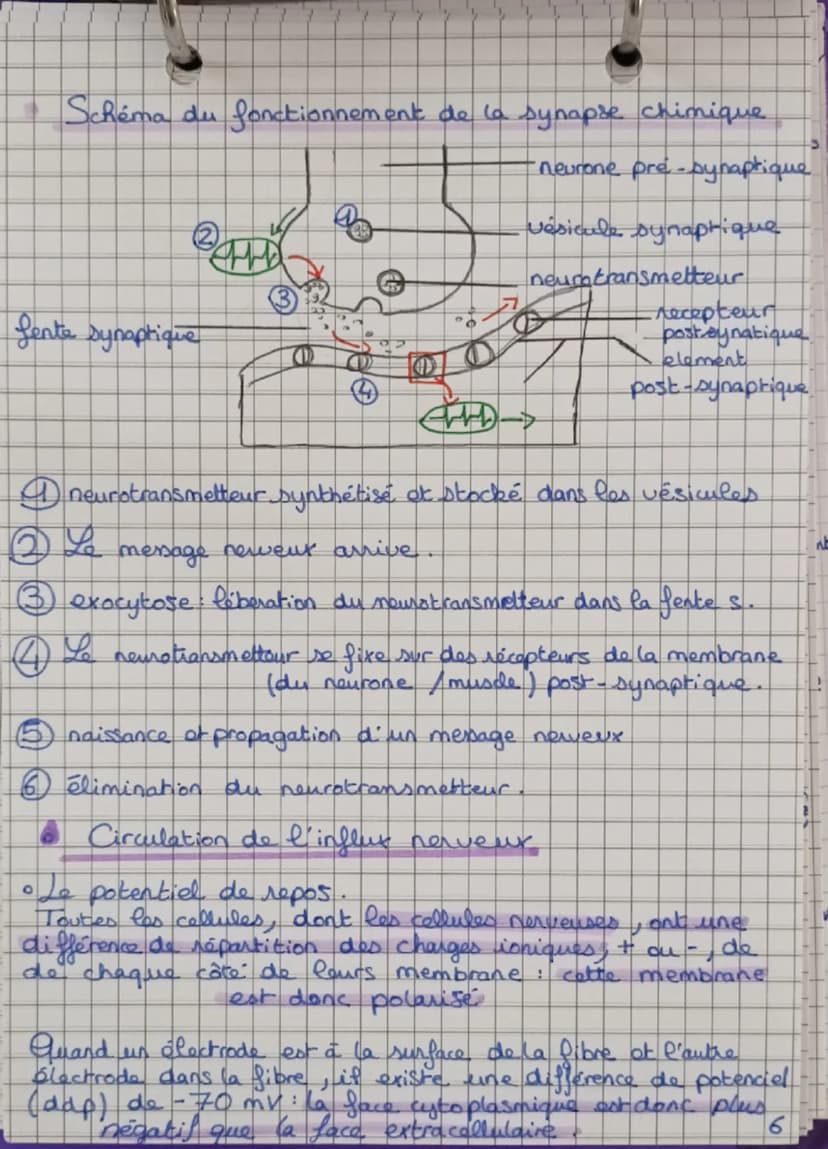 Schéma du fonctionnement de la synapse chimique
neurone pré-synaptique
①
vésicule synaptique
②
neurotransmetteur
③
recepteur
postsynatique
fente synaptique
element
post-synaptique
④
① neurotransmetteur synthétisé et stocké dans les vésicules
② Le message nerveux arrive.
③ exocytose : libération du neurotransmetteur dans la fente s.
④ Le neurotransmetteur se fixe sur des récepteurs de la membrane
(du neurone /muscle) post-synaptique.
⑤ naissance et propagation d'un message nerveux
⑥ élimination du neurotransmetteur.
Circulation de l'influx nerveux
Le potentiel de repos.
Toutes les cellules, dont les cellules nerveuses, ont une
différence de répartition des charges ioniques, + ou -, de
de chaque côté de leurs membrane : cette membrane
est donc polarisé
Quand un électrode est à la surface de la fibre et l'autre
électrode dans la fibre, il existe une différence de potenciel
(ddp) de -70 mV : la face cytoplasmique est donc plus
négatif que la face extracellulaire.
6